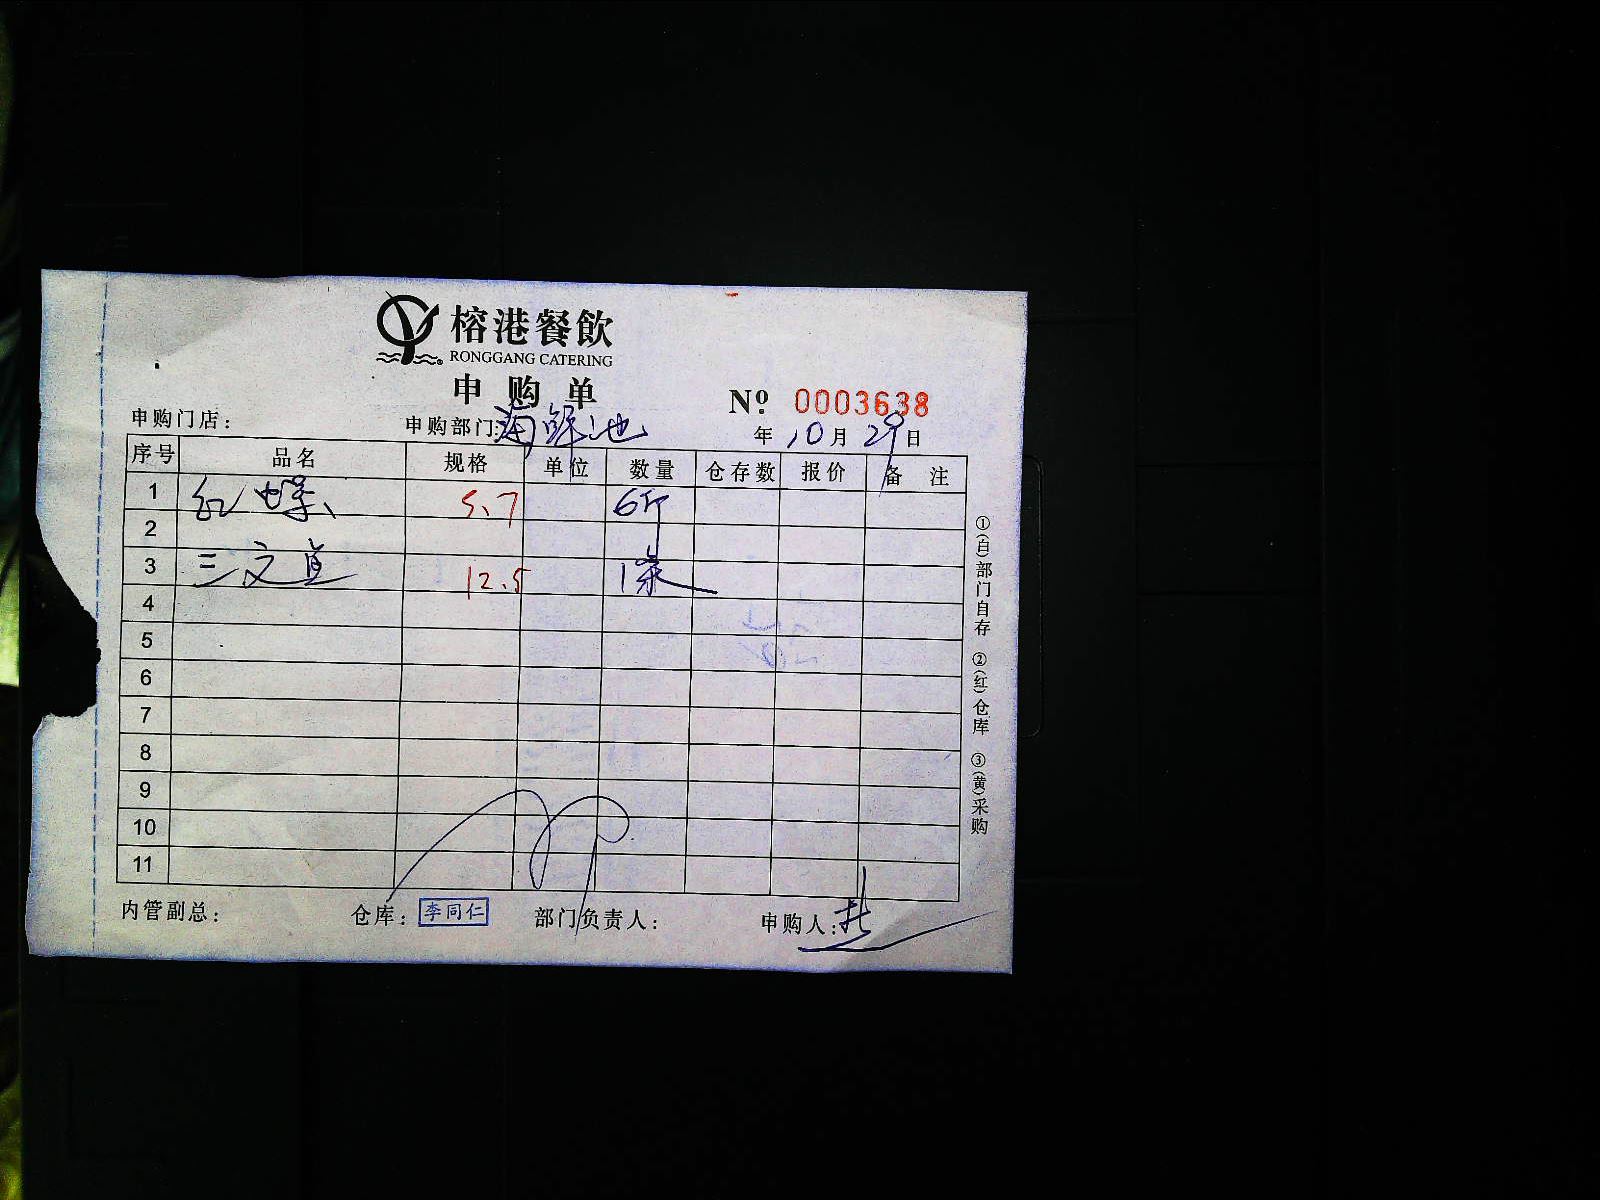 榕港餐飲
RONGGANG CATERING
申购单
Nº 0003638
申购门店： 申购部门：海鲜池 年 10月 29日
序号 品名 规格 单位 数量 仓存数 报价 备注
1 红螺 5.7 6斤
2
3 三文鱼 12.5 1条
4
5
6
7
8
9
10
11
①(白)部门自存 ②(红)仓库 ③(黄)采购
内管副总： 仓库：李同仁 部门负责人： 申购人：